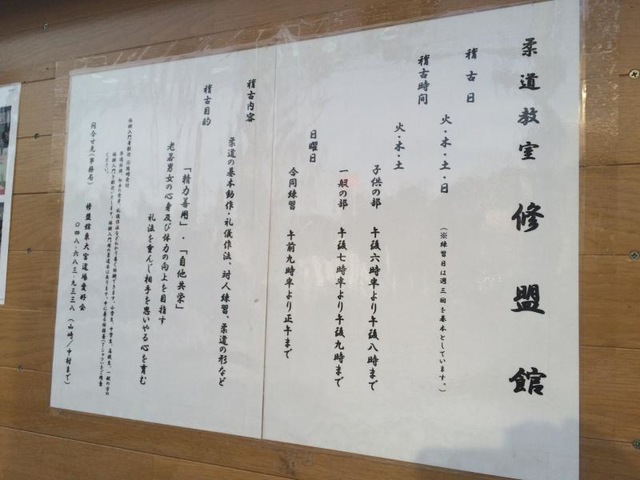 柔道教室 修盟館
稽古日
火・木・土・日
(※練習日は週三回を基本としています。)
稽古時間
火・木・土
子供の部 午後六時より午後八時まで
一般の部 午後七時半より午後九時まで
日曜日
合同練習 午前九時半より正午まで
稽古内容
柔道の基本動作・礼儀作法、対人練習、柔道の形など
稽古目的
「精力善用」・「自他共栄」
老若男女の心身及び体力の向上を目指す
礼法を重んじ相手を思いやる心を育む
問合せ先(事務局)
修盟館東大宮道場愛好会
〇四八・六八三・九三三八 (山崎/中村まで)